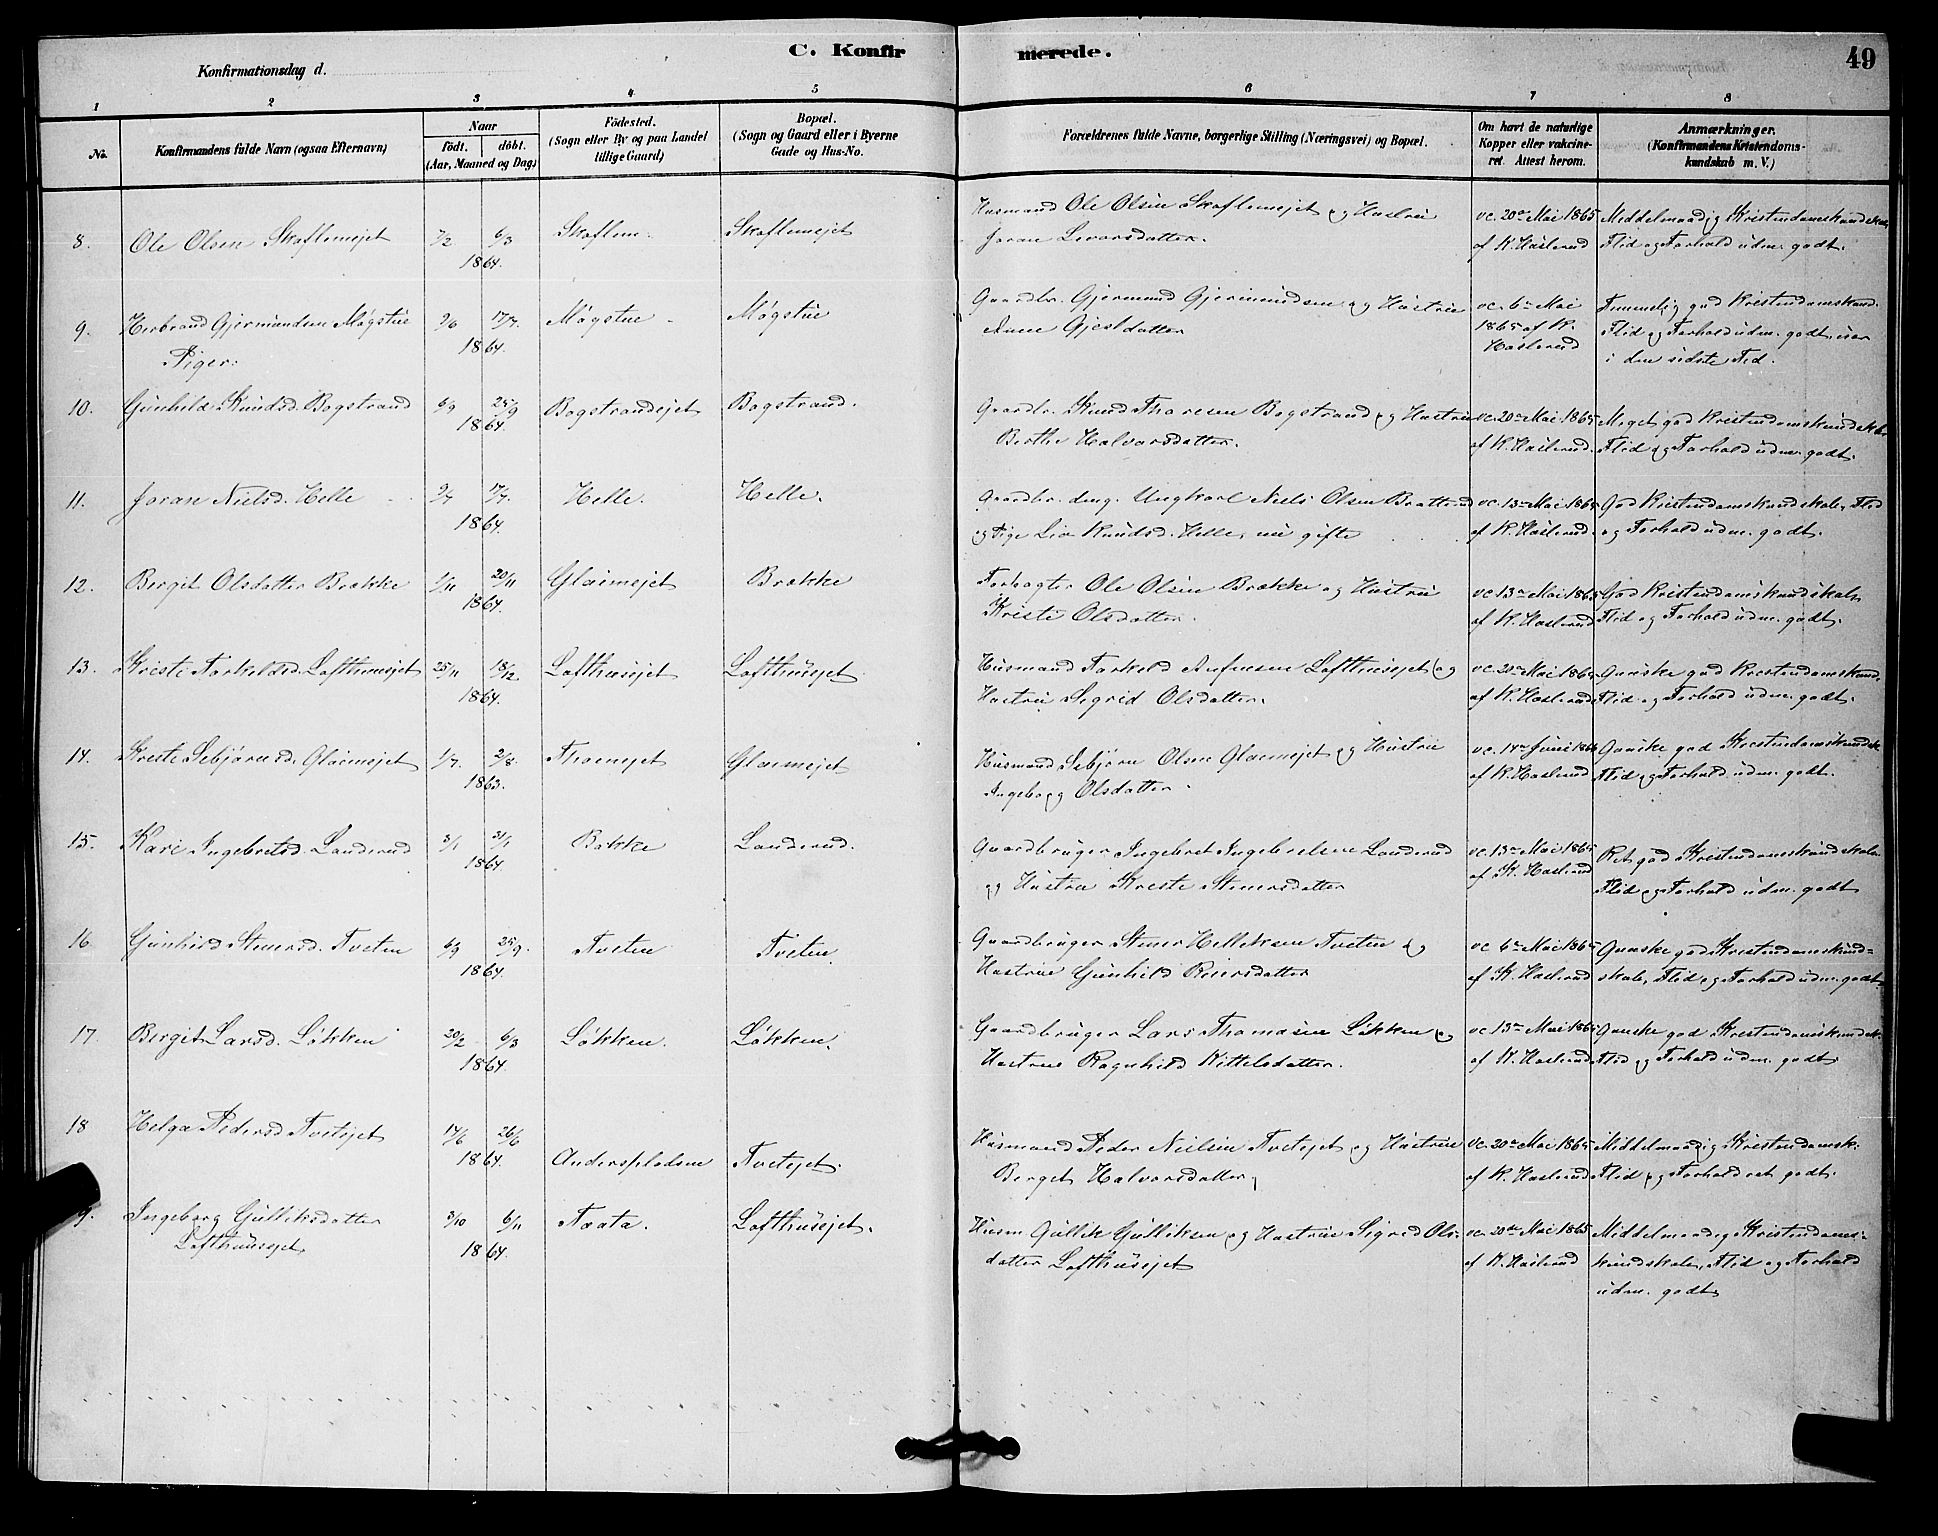 C. Konfirmerede.
49
Konfirmationsdag d.
1 2 3 4 5 6 7 8
No.
Konfirmandens fulde Navn (ogsaa Efternavn)
Naar
födt. döbt.
(Aar, Maaned og Dag)
Födested.
(Sogn eller By og paa Landet
tillige Gaard)
Bopæl.
(Sogn og Gaard eller i Byerne
Gade og Hus-No.
Forældrenes fulde Navne, borgerlige Stilling (Næringsvei) og Bopæl.
Om havt de naturlige
Kopper eller vakcine-
ret. Attest herom.
Anmærkninger.
(Konfirmandens Kristendoms-
kundskab m. V.)
8. Ole Olsen Skoflemejet 7/2 6/3 Skoflem. Skoflemejet
1864.
Husmand Ole Olsen Skoflemejet og Hustrue
Joran Levorsdatter.
vc. 20de Mai 1865
af K. Haslerud
Middelmaadig Kristendomskundskab,
Flid og Forhold udm. godt.
9. Herbrand Gjermundsen Møgstue 9/6 17/7. Møgstue Møgstue
1864.
Gaardbr. Gjermund Gjermundsen og Hustrue
Anne Gjestdatter
vc. 6te Mai
1865 af K.
Haslerud
Temmelig god Kristendomskund.
Flid og Forhold udm. godt, især
i den sidste Tid.
Piger:
10. Gunhild Knudsd. Bogstrand 6/9 25/9 Bogstrandejet Bogstrand.
1864.
Gaardbr. Knud Thoresen Bogstrand og Hustrue
Berthe Halvorsdatter.
vc. 20de Mai 1865
af K. Haslerud.
Meget god Kristendomskundskab
Flid og Forhold udm. godt.
11. Joran Nielsd. Helle 9/7 17/7. Helle. Helle.
1864.
Gaardbr. dengr. Ungkarl Niels Olsen Bratterud
og Pige Liv Knudsd. Helle, nu gifte
vc. 13de Mai 1865
af K. Haslerud.
God Kristendomskundskab, Flid
og Forhold udm. godt.
12. Bergit Olsdatter Brække 1/11 20/11 Gloimejet Brække
1864.
Forpagter Ole Olsen Brække og Hustrue
Kriste Olsdatter.
vc 13de Mai 1865
af K. Haslerud
God Kristendomskundskab,
Flid og Forhold udm. godt.
13. Kriste Torkeldsd. Lofthusejet 25/11 18/12 Lofthusejet Lofthusejet
1864.
Husmand Torkeld Anfinsen Lofthusejet og
Hustrue Sigrid Olsdatter.
vc. 20de Mai 1865
af K. Haslerud
Ganske god Kristendomskund.
Flid og Forhold udm. godt.
14. Kreste Sebjørnsd. Gloimejet 1/7. 2/8. Thoensejet Gloimejet
1863.
Husmand Sebjørn Olsen Gloimejet og Hustrue
Ingeborg Olsdatter.
vc. 14de Juni 1864
af K. Haslerud
Ganske god Kristendomskundsk.
Flid og Forhold udm. godt.
15. Kari Ingebretsd. Landerud 3/1 31/1 Bakke Landerud.
1864.
Gaardbruger Ingebret Ingebretsen Landerud
og Hustrue Kreste Stenersdatter
vc. 13de Mai 1865
af K. Haslerud
Ret god Kristendomskundskab
Flid og Forhold udm. godt
16. Gunhild Stenersd. Tveten 6/9 25/9. Tveten Tveten.
1864.
Gaardbruger Stener Helleksen Tveten og
Hustrue Gunhild Reiersdatter
vc 6te Mai 1865
af K. Haslerud
Ganske god Kristendomskund=
skab, Flid og Forhold udm. godt.
17. Bergit Larsd. Løkken 20/2 6/3 Løkken. Løkken.
1864.
Gaardbruger Lars Thomasen Løkken og
Hustrue Ragnhild Kittelsdatter.
vc 13de Mai 1865
af K. Haslerud
Ganske god Kristendomskundsk.
Flid og Forhold udm. godt.
18 Helga Pedersd Tvetejet 14/6 26/6 Andersplassen Tvetejet.
1864.
Husmand Peder Nielsen Tvetejet og Hustrue
Berget Halvorsdatter,
vc. 20de Mai 1865
af K. Haslerud
Middelmaadig Kristendomsk.
Flid og Forhold ret godt.
9. Ingeborg Gulliksdatter 3/10 6/11 Traata. Lofthusejet.
Lofthusejet 1864.
Husm Gullik Gulliksen og Hustrue Sigrid Ols-
datter Lofthusejet
vc 20de Mai 1865
af K. Haslerud
Middelmaadig Kristendoms-
kundskab, Flid og Forhold
udm. godt.